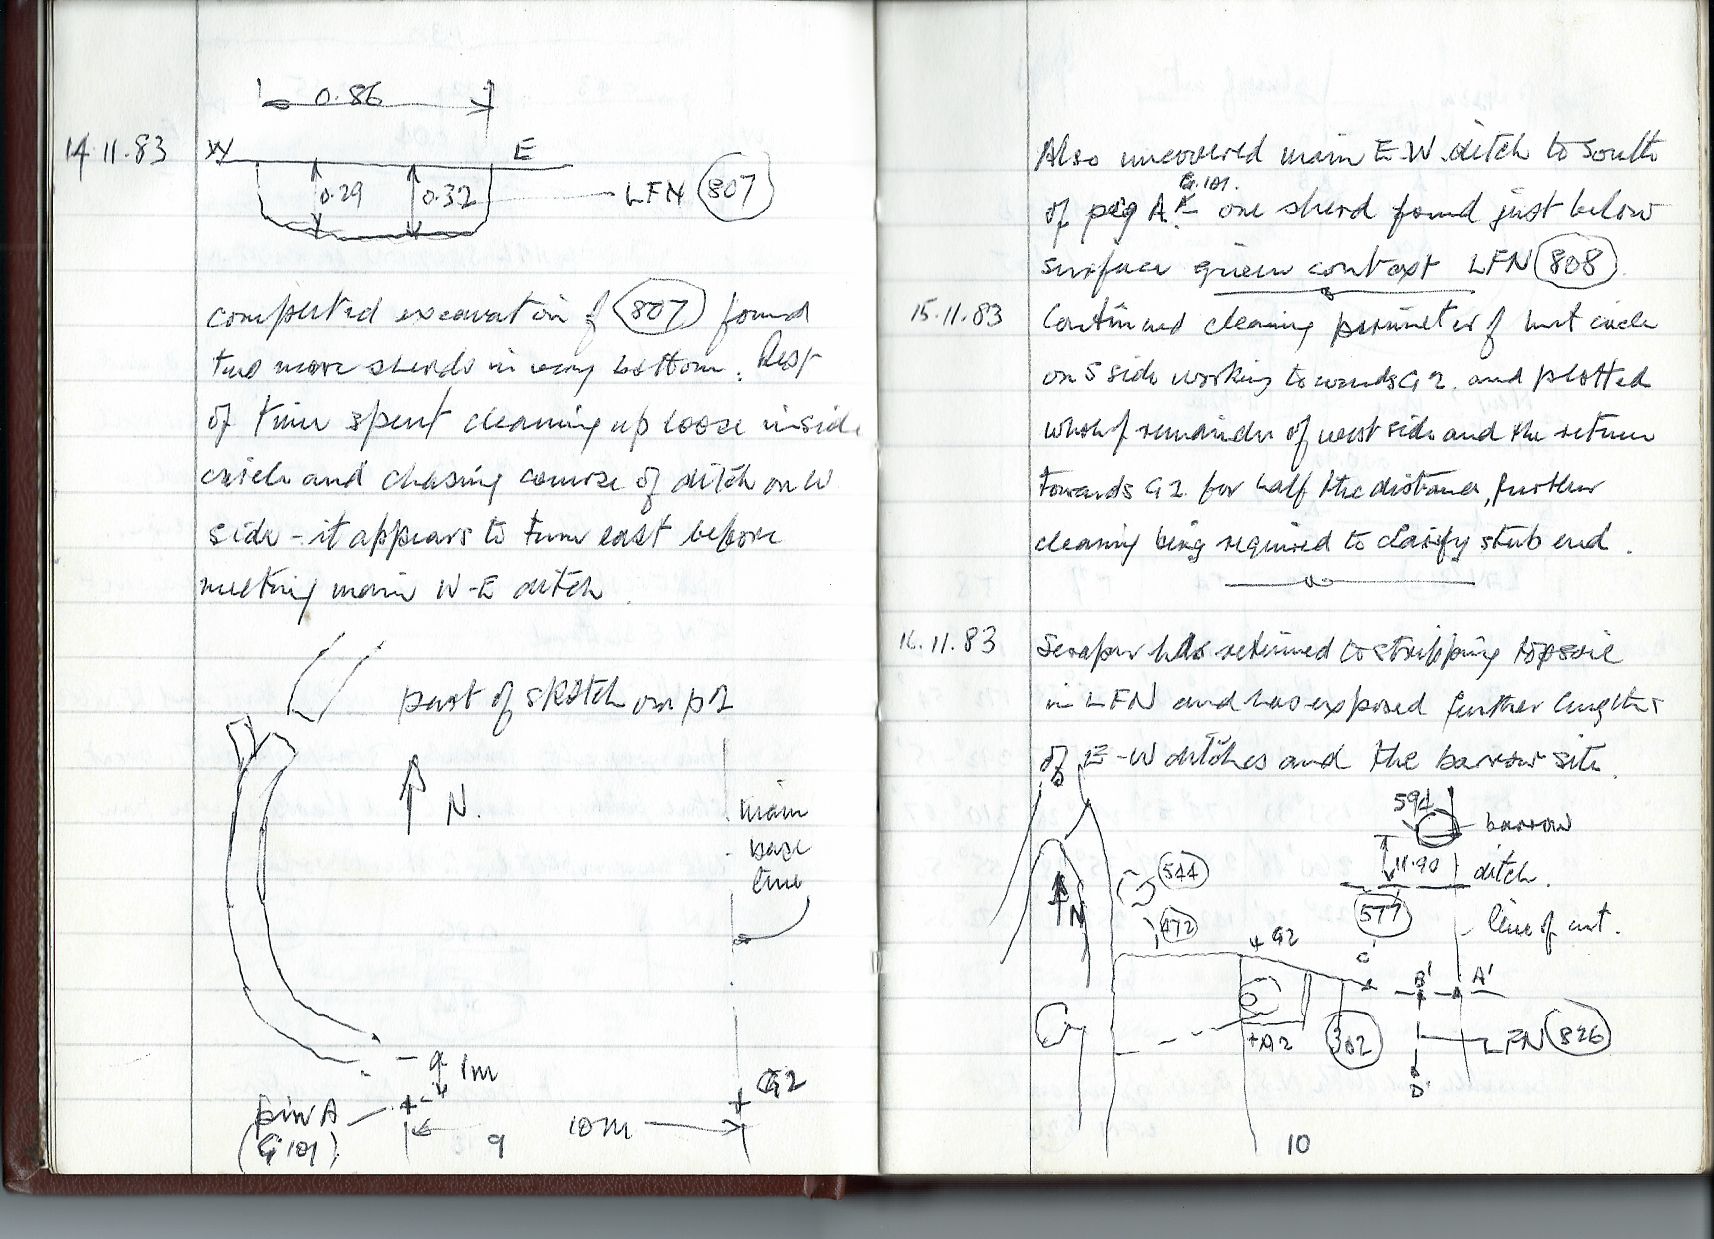 0.86
14.11.83
W E
0.29 0.32 LFN 807
completed excavation of 807 found
two more sherds in very bottom. Rest
of time spent cleaning up loose inside
circle and chasing course of ditch on W
side - it appears to turn east before
meeting main W-E ditch.
part of sketch on p2
N.
main
base
line
1m
G2
pin A
(G101)
10m
9
Also uncovered main E-W ditch to South
G.101.
of peg A. one sherd found just below
surface given context LFN 808.
15.11.83 Continued cleaning perimeter of hut circle
on S side working towards G2. and plotted
whole of remainder of west side and the return
towards G2 for half the distance, further
cleaning being required to clarify stub end.
16.11.83 Scraper has returned to stripping topsoil
in LFN and has exposed further lengths
of E-W ditches and the barrow site.
594
barrow
11.90 ditch.
544
577
N
472
line of cut.
G2
C
B' A'
+A2 302 LFN 826
D'
10